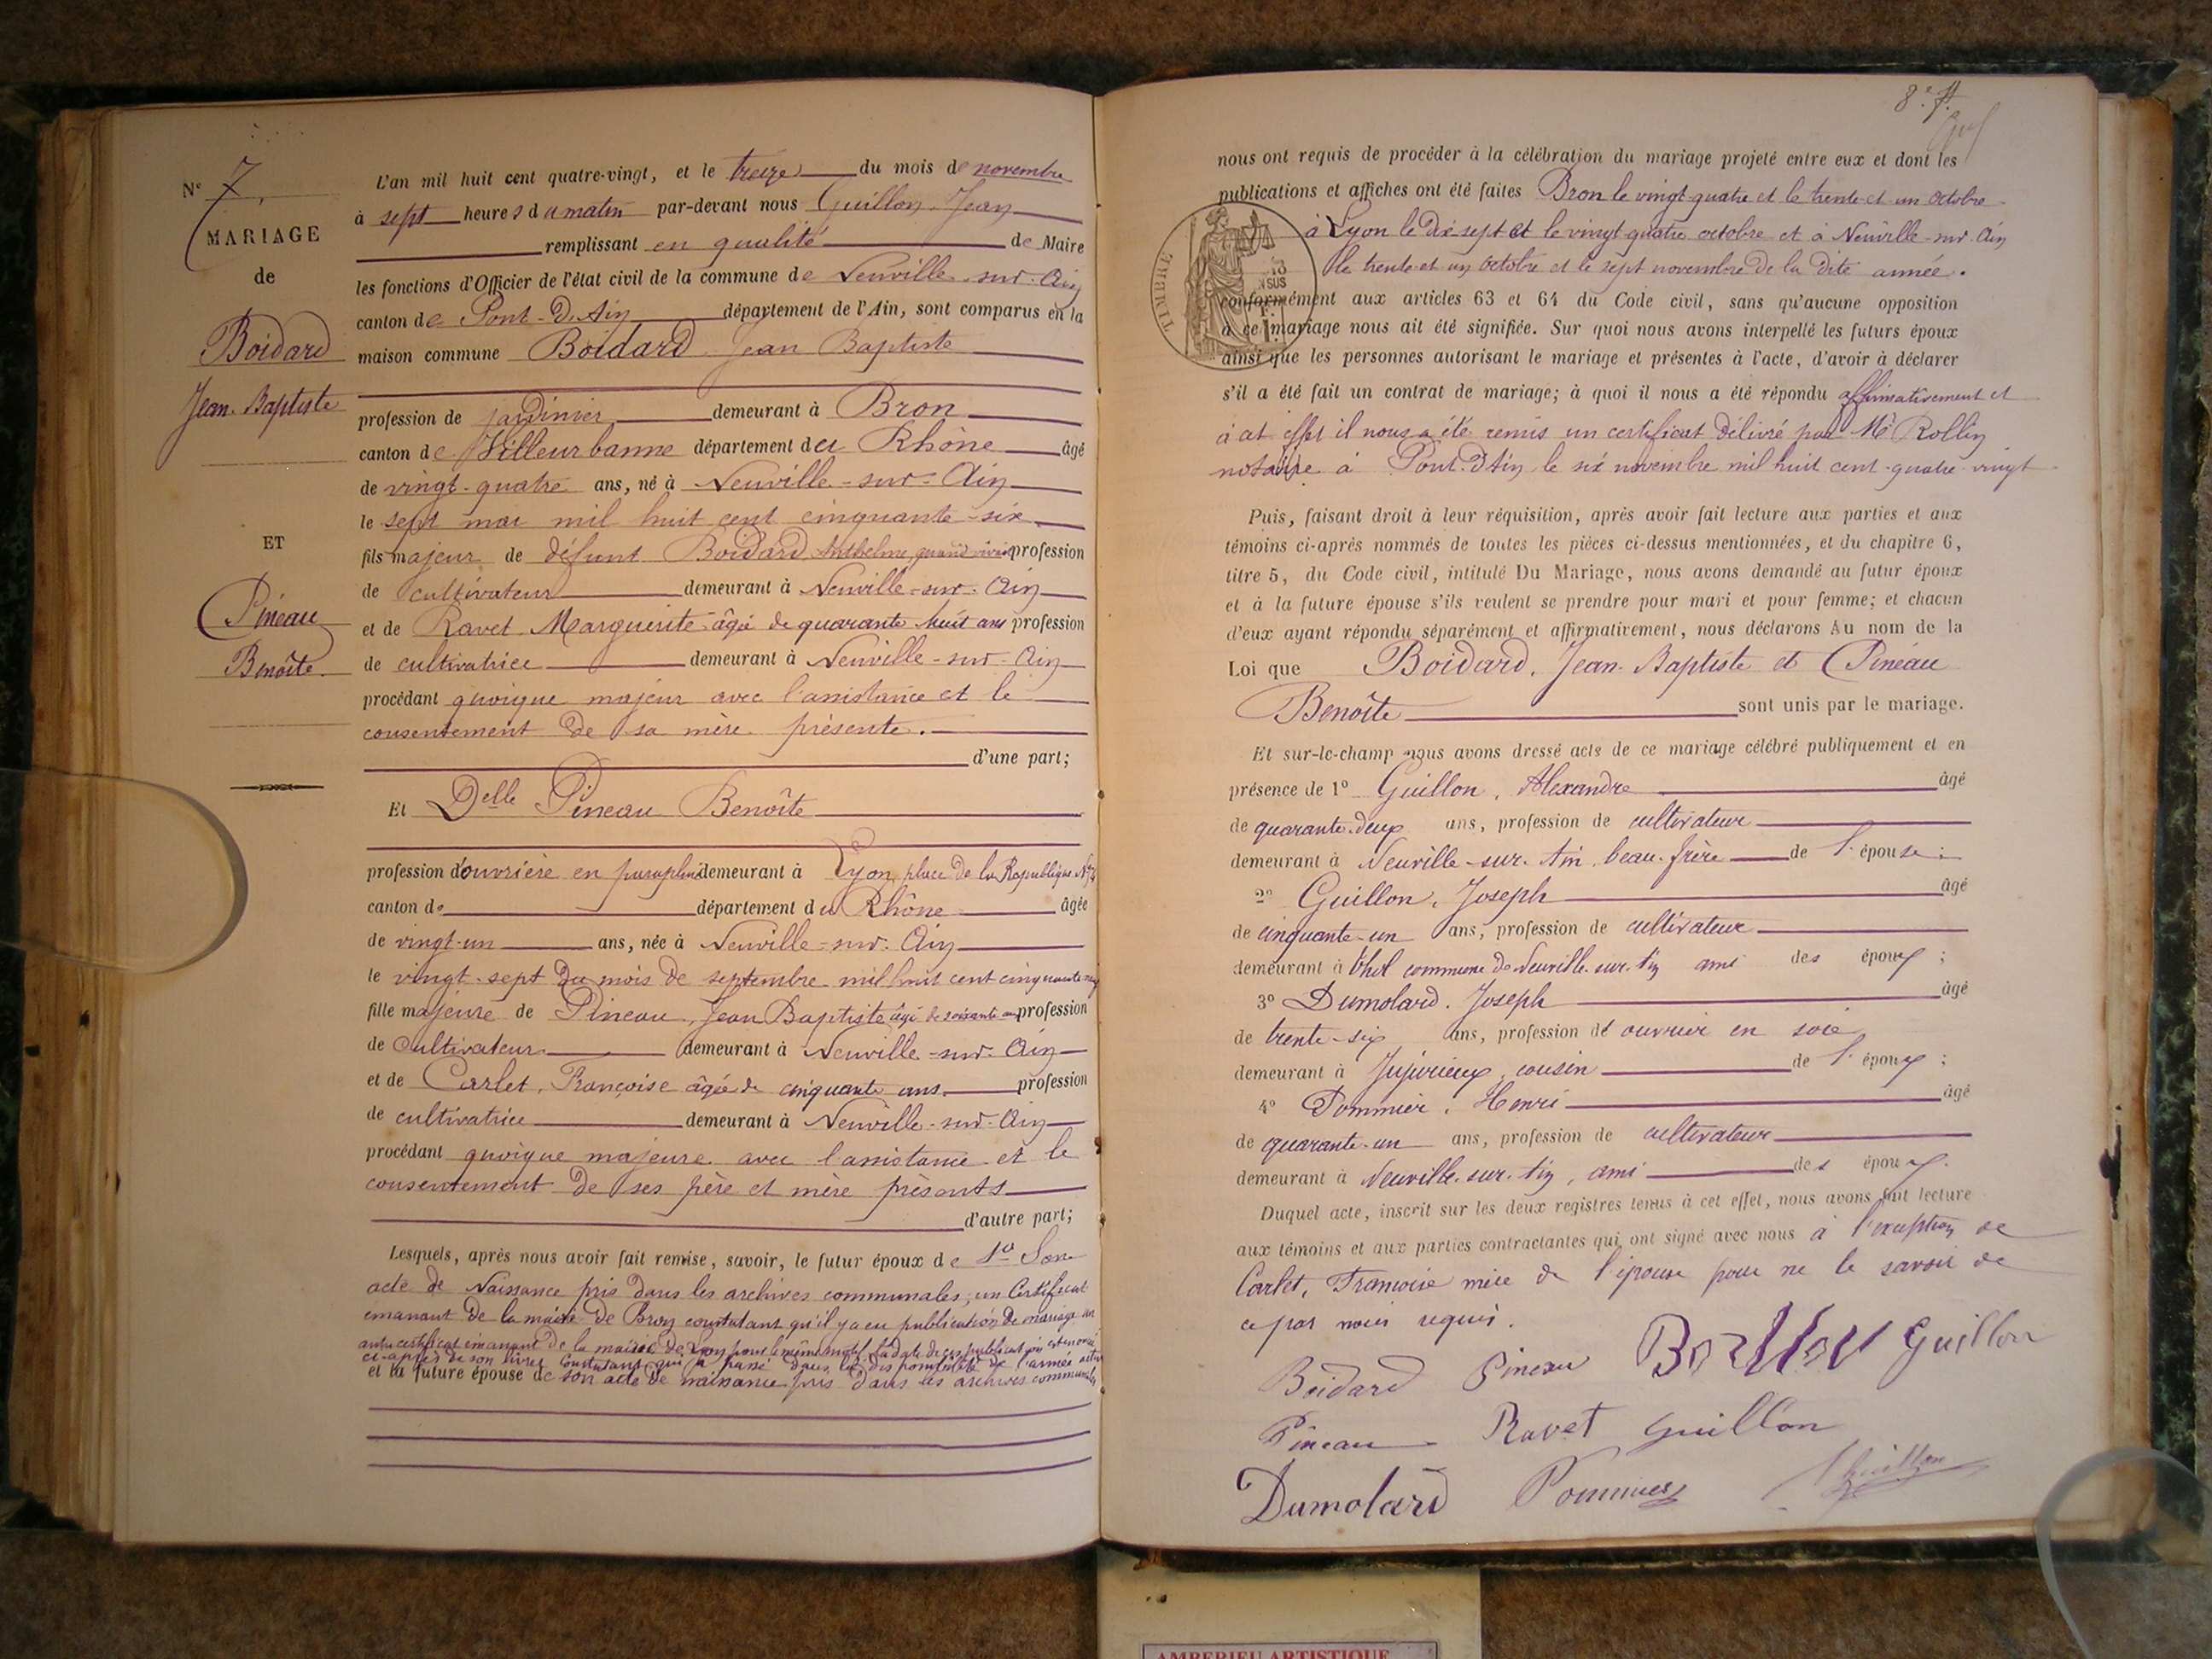 N° 7.
MARIAGE
de
Boidard
Jean-Baptiste
ET
Pineau
Benoîte.
L'an mil huit cent quatre-vingt, et le treize du mois de novembre
à sept heures du matin par-devant nous Guillon, Jean
remplissant en qualité de Maire
les fonctions d'Officier de l'état civil de la commune de Neuville-sur-Ain
canton de Pont-d'Ain département de l'Ain, sont comparus en la
maison commune Boidard Jean Baptiste
profession de jardinier demeurant à Bron
canton de Villeurbanne département du Rhône âgé
de vingt-quatre ans, né à Neuville-sur-Ain
le sept mai mil huit cent cinquante-six
fils majeur de défunt Boidard Anthelme, quand vivait profession
de cultivateur demeurant à Neuville-sur-Ain
et de Ravet Marguerite âgée de quarante huit ans profession
de cultivatrice demeurant à Neuville-sur-Ain
procédant quoique majeur avec l'assistance et le
consentement de sa mère présente.
d'une part;
Et Delle Pineau Benoîte
profession d'ouvrière en parapluie demeurant à Lyon, place de la République N°
canton de département du Rhône âgée
de vingt-un ans, née à Neuville-sur-Ain
le vingt-sept du mois de septembre mil huit cent cinquante neuf
fille majeure de Pineau, Jean Baptiste âgé de soixante ans profession
de cultivateur demeurant à Neuville-sur-Ain
et de Carlet, Françoise âgée de cinquante ans profession
de cultivatrice demeurant à Neuville-sur-Ain
procédant quoique majeure avec l'assistance et le
consentement de ses père et mère présents
d'autre part;
Lesquels, après nous avoir fait remise, savoir, le futur époux de 1° Son
acte de Naissance pris dans les archives communales, un Certificat
emanant de la mairie de Bron constatant qu'il y a eu publication de mariage un
autre certificat émanant de la mairie de Lyon pour le même motif la date de ces publications est
ci-après de son livret constatant qu'il a passé dans la disponibilité de l'armée active
et la future épouse de son acte de naissance pris dans les archives communales
8e f.
nous ont requis de procéder à la célébration du mariage projeté entre eux et dont les
publications et affiches ont été faites Bron le vingt quatre et le trente et un octobre
à Lyon le dix sept et le vingt quatre octobre et à Neuville-sur-Ain
le trente et un octobre et le sept novembre de la dite année.
TIMBRE
conformément aux articles 63 et 64 du Code civil, sans qu'aucune opposition
à ce mariage nous ait été signifiée. Sur quoi nous avons interpellé les futurs époux
ainsi que les personnes autorisant le mariage et présentes à l'acte, d'avoir à déclarer
s'il a été fait un contrat de mariage; à quoi il nous a été répondu affirmativement et
à cet effet il nous a été remis un certificat délivré par Me Rollin
notaire à Pont-d'Ain le six novembre mil huit cent quatre-vingt
Puis, faisant droit à leur réquisition, après avoir fait lecture aux parties et aux
témoins ci-après nommés de toutes les pièces ci-dessus mentionnées, et du chapitre 6,
titre 5, du Code civil, intitulé Du Mariage, nous avons demandé au futur époux
et à la future épouse s'ils veulent se prendre pour mari et pour femme; et chacun
d'eux ayant répondu séparément et affirmativement, nous déclarons Au nom de la
Loi que Boidard, Jean-Baptiste et Pineau
Benoîte sont unis par le mariage.
Et sur-le-champ nous avons dressé acte de ce mariage célébré publiquement et en
présence de 1° Guillon, Alexandre âgé
de quarante-deux ans, profession de cultivateur
demeurant à Neuville-sur-Ain beau-frère de l'épouse;
2° Guillon, Joseph âgé
de cinquante-un ans, profession de cultivateur
demeurant à Thol commune de Neuville-sur-Ain ami des époux;
3° Dumolard, Joseph âgé
de trente-six ans, profession de ouvrier en soie
demeurant à Jujurieux, cousin de l'époux;
4° Pommier, Henri âgé
de quarante-un ans, profession de cultivateur
demeurant à Neuville-sur-Ain, ami des époux.
Duquel acte, inscrit sur les deux registres tenus à cet effet, nous avons fait lecture
aux témoins et aux parties contractantes qui ont signé avec nous à l'exception de
Carlet, Françoise mère de l'épouse pour ne le savoir de
ce par nous requis.
Boidard Pineau Guillon
Pineau Ravet Guillon
Dumolard Pommier Guillon
AMBERIEU ARTISTIQUE